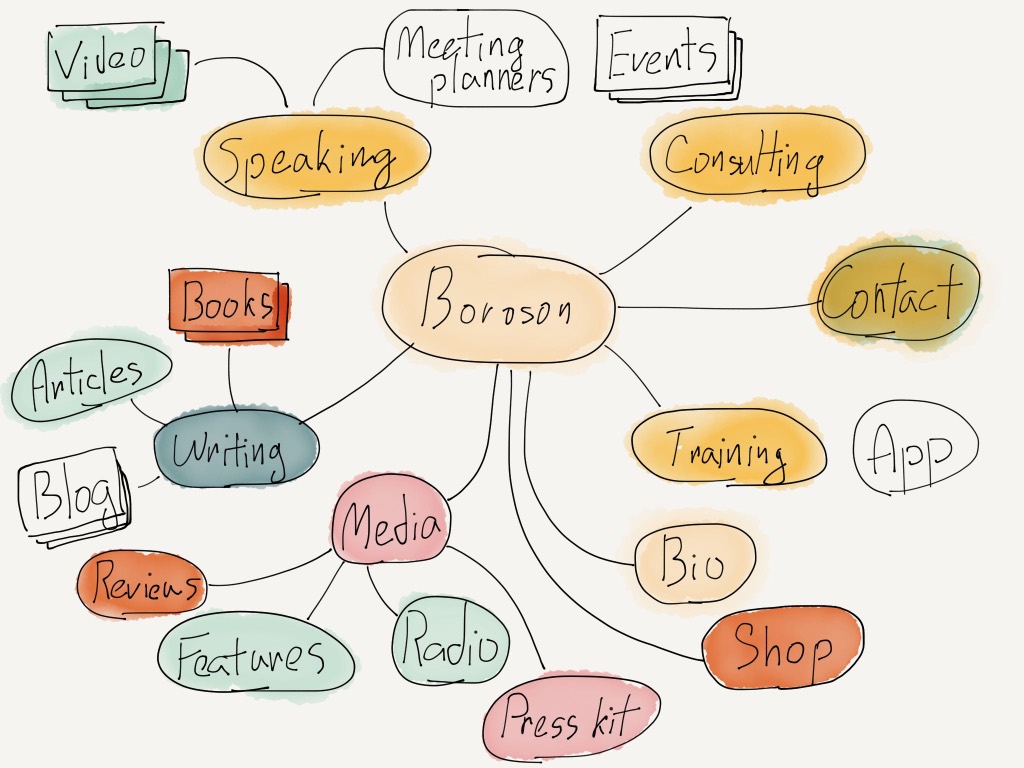 Video
Meeting
planners
Events
Speaking
Consulting
Boroson
Contact
Books
Articles
Writing
Training
App
Blog
Media
Bio
Reviews
Features
Radio
Shop
Press kit